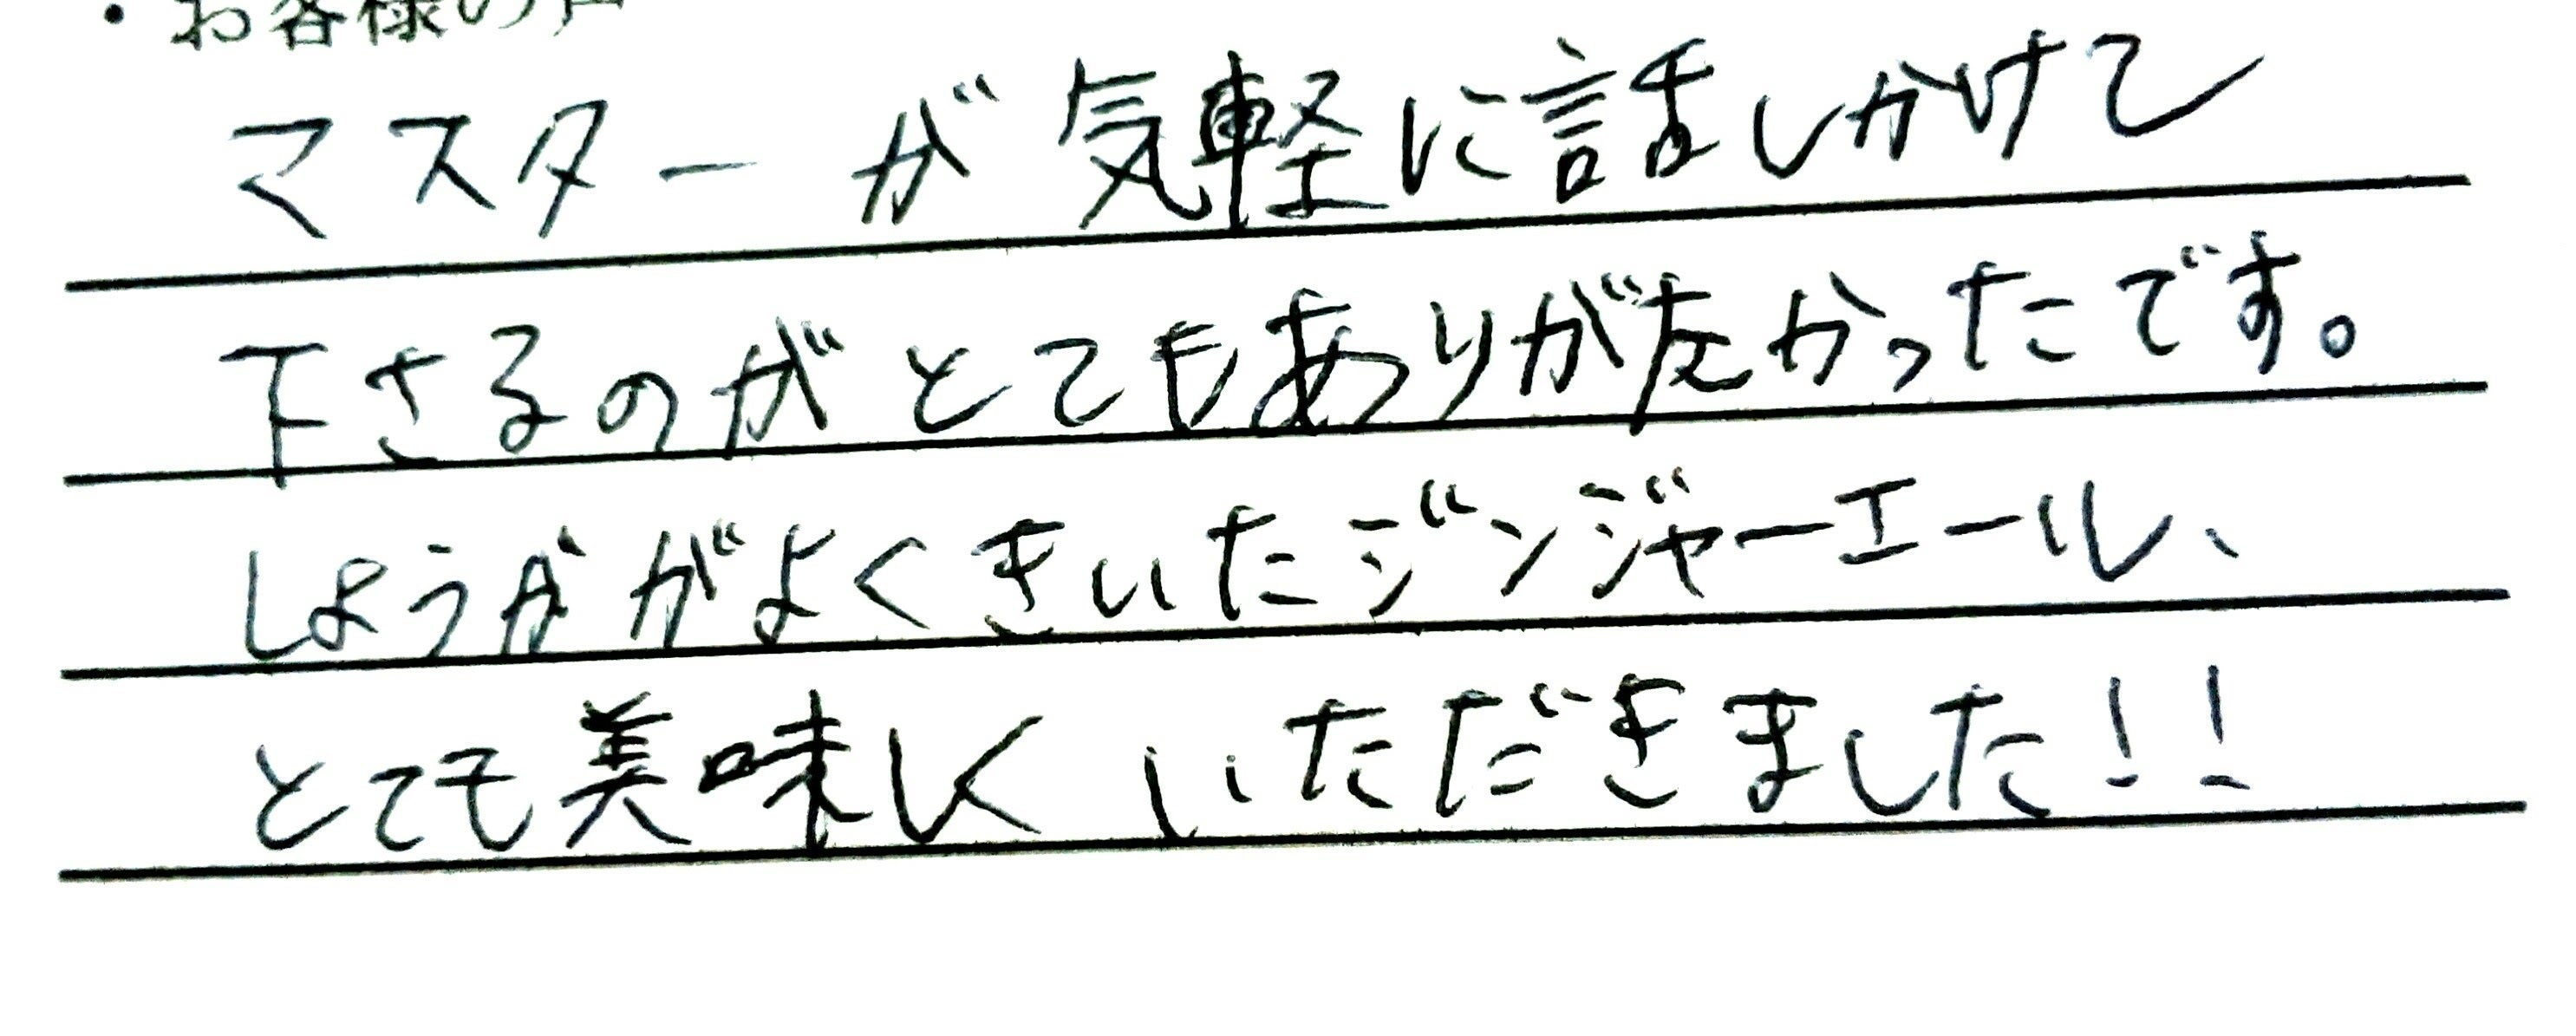 ・お客様の声
マスターが気軽に話しかけて
下さるのがとてもありがたかったです。
しょうががよくきいたジンジャーエール、
とても美味しくいただきました!!